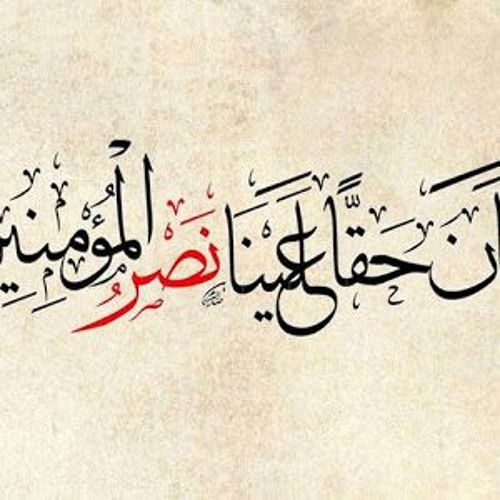 انَ حَقًّا عَلَيْنَا نَصْرُ الْمُؤْمِنِي